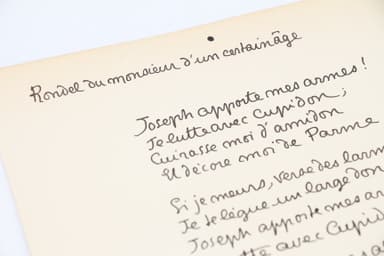 Rondel du monsieur d'un certain âge
Joseph apporte mes armes !
Je lutte avec Cupidon ;
Cuirasse moi d'amidon
Et décore moi de Parme
Si je meurs, verse des larm
Je te lègue un large don
Joseph apporte mes ar
tte avec Cupid